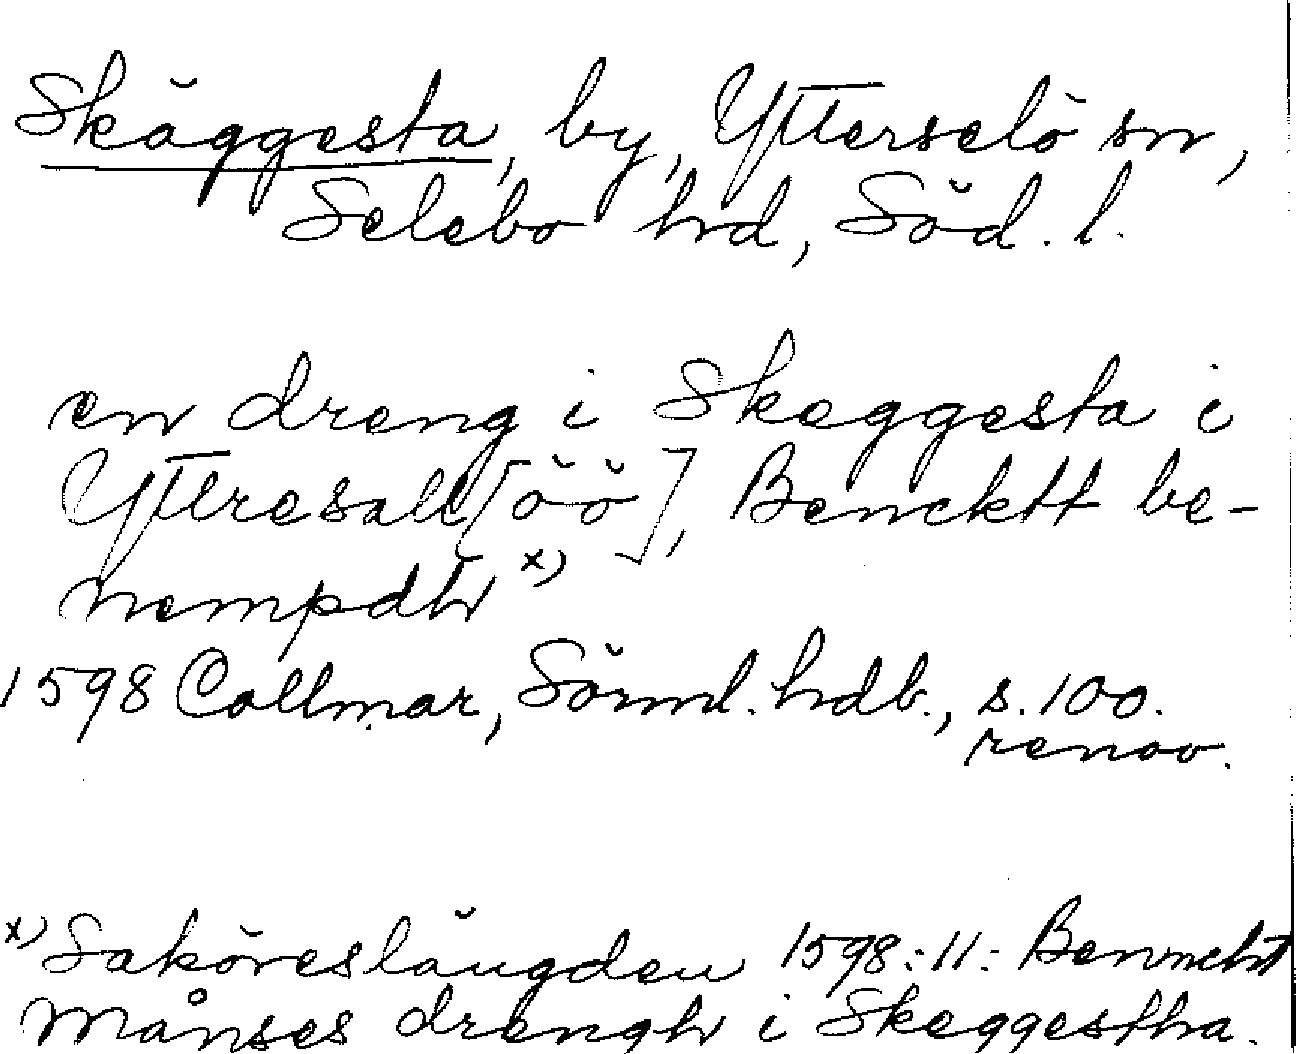 Skäggesta, by, Ytterselö sn,
Selebo hd, Söd. l.
en dreng i Skeggesta i
Yttresall[öö], Bencktt be-
nempdh x)
1598 Collmar, Sörml. hdb., s. 100.
renov.
x) Saköreslängden 1598:11: Benncht
Månses drengh i Skeggestha.